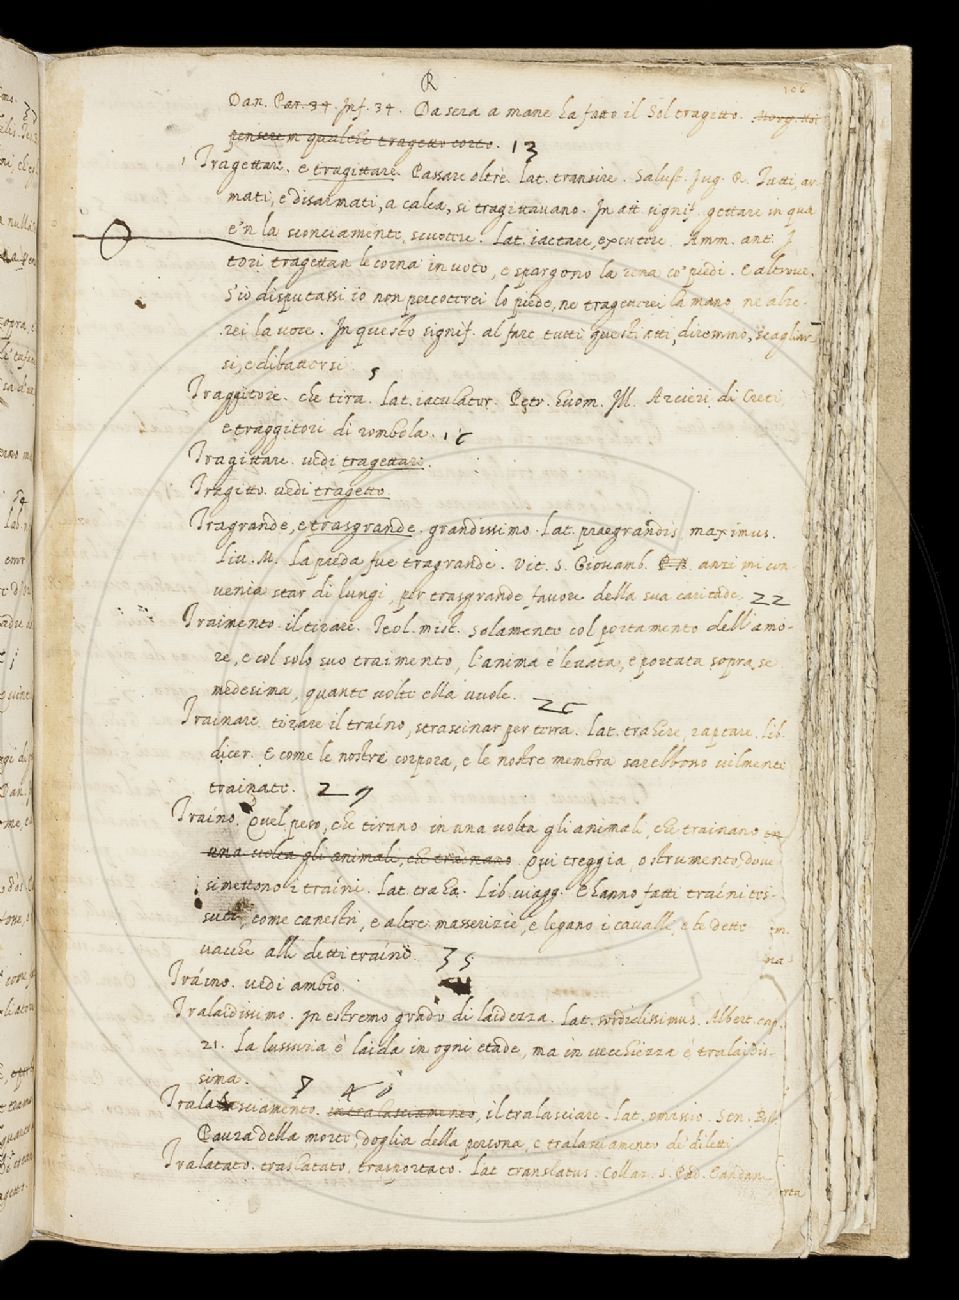 R
106
Dan. Par. 34. Inf. 34. Da sera a mane ha fatto il Sol tragetto.
pensere in qualche tragetto corto. 13
Tragettare. e tragittare. Passare oltre. lat. transire. Salust. Jug. R. Tatti, ar-
mati, e disarmati, a calca, si tragittavano. In att. signif. gettare in quà
e 'n là sconciamente, scuotere. Lat. iactare, excutere. Amm. ant. I
tori tragettan le corna in uoto, e spargono la rena co' piedi. E altroue.
S'io disputassi io non percoterei lo piede, ne tragetterei la mano ne alze-
rei la uoce. In questo signif. al fare tutti questi atti, diremmo, scagliar-
si, e dibattersi 5
Traggitore. che tira. Lat. iaculator. Petr. huom. Ill. Arcieri di Creti,
e traggitori di rombola. 16
Tragittare. uedi tragettare.
Tragitto. uedi tragetto.
Tragrande, e trasgrande. grandissimo. Lat. praegrandis, maximus.
Liu. M. La preda fue tragrande. Vit. S. Giouamb. anzi mi con-
uenia star di lungi, per trasgrande fauore della sua caritade. 22
Traimento. il tirare. Teol. mist. Solamente col portamento dell'amo-
re, e col solo suo traimento, l'anima è leuata, e portata sopra se
medesima, quante uolte ella uuole. 26
Trainare. tirare il traíno, strascinar per terra. Lat. trahere, raptare. Lib.
dicer. E come le nostre corpora, e le nostre membra sarebbono uilmente
trainate. 29
Traíno. Quel peso, che tirano in una uolta gli animali, che trainano in
una uolta gli animali, che trainano. Qui treggia, o strumento, doue
si mettono i traíni. Lat. traha. Lib. uiagg. E hanno fatti traíni tes-
suti, come canestri, e altre masserizie, e legano i caualli, e le dette
uacche alli detti traíni. 35
Tráino. uedi ambio.
Tralaidissimo. In estremo grado di laidezza. Lat. sordidissimus. Albert. cap.
21. La lussuria è laida in ogni etade, ma in uecchiezza è tralaidis-
sima. 40
Tralasciamento. intralasciamento, il tralasciare. Lat. omissio. Sen. Pist.
Paura della morte, doglia della persona, e tralasciamento di diletti.
Tralatato. traslatato, trasportato. Lat. translatus. Collaz. S. Pad.